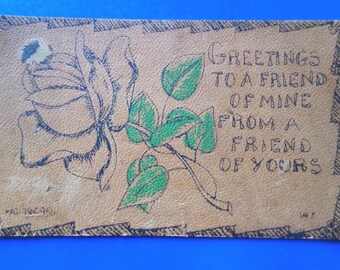 GREETINGS
TO A FRIEND
OF MINE
FROM A
FRIEND
OF YOURS